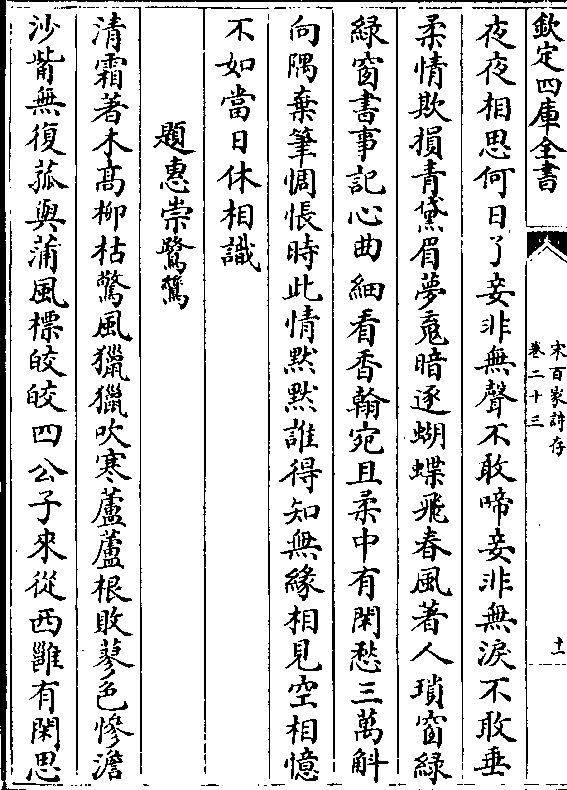 欽定四庫全書
宋百家詩存
卷二十三
十一
夜夜相思何日了妾非無聲不敢啼妾非無淚不敢垂
柔情欺損青黛眉夢䰟暗逐蝴蝶飛春風著人瑣窗綠
綠窗書事記心曲細看香翰宛且柔中有閑愁三萬斛
向隅棄筆惆悵時此情黙黙誰得知無緣相見空相憶
不如當日休相識
題惠崇鷺鷥
清霜著木髙柳枯驚風獵獵吹寒蘆蘆根敗蓼色慘澹
沙觜無復菰與蒲風標皎皎四公子來從西雝有閑思